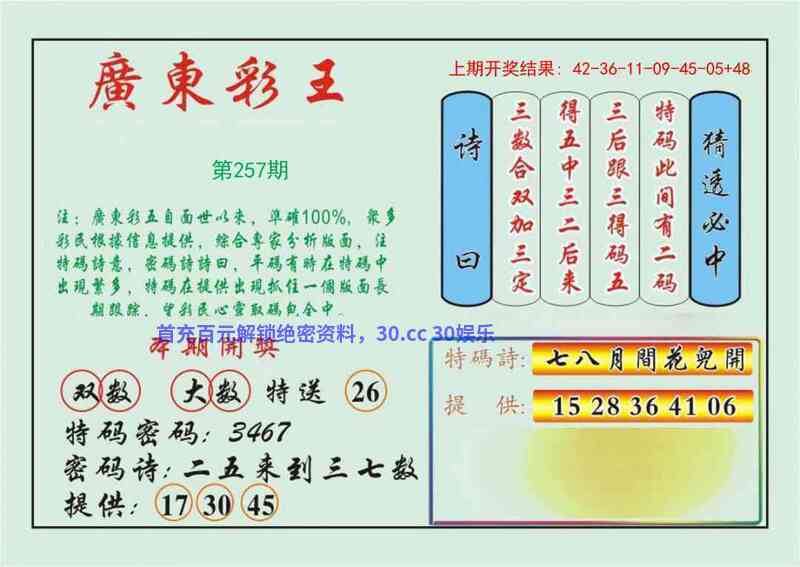 廣東彩王
上期开奖结果：42-36-11-09-45-05+48
第257期
诗曰
三数合双加三定
得五中三二后来
三后跟三得码五
特码此间有二码
猜透必中
注：廣東彩五自面世以来，準確100%，衆多
彩民根據信息提供，綜合專家分析版面，注
特碼詩意，密碼詩詩曰，平碼有時在特碼中
出現繁多，特碼在提供出現抓住一個版面長
期跟踪，曾彩民心靈取碼包合中。
首充百元解锁绝密资料，30.cc 30娱乐
本期開獎
双数 大数 特送 26
特码密码：3467
密码诗：二五来到三七数
提供：17 30 45
特碼詩：七八月間花兜開
提供：15 28 36 41 06